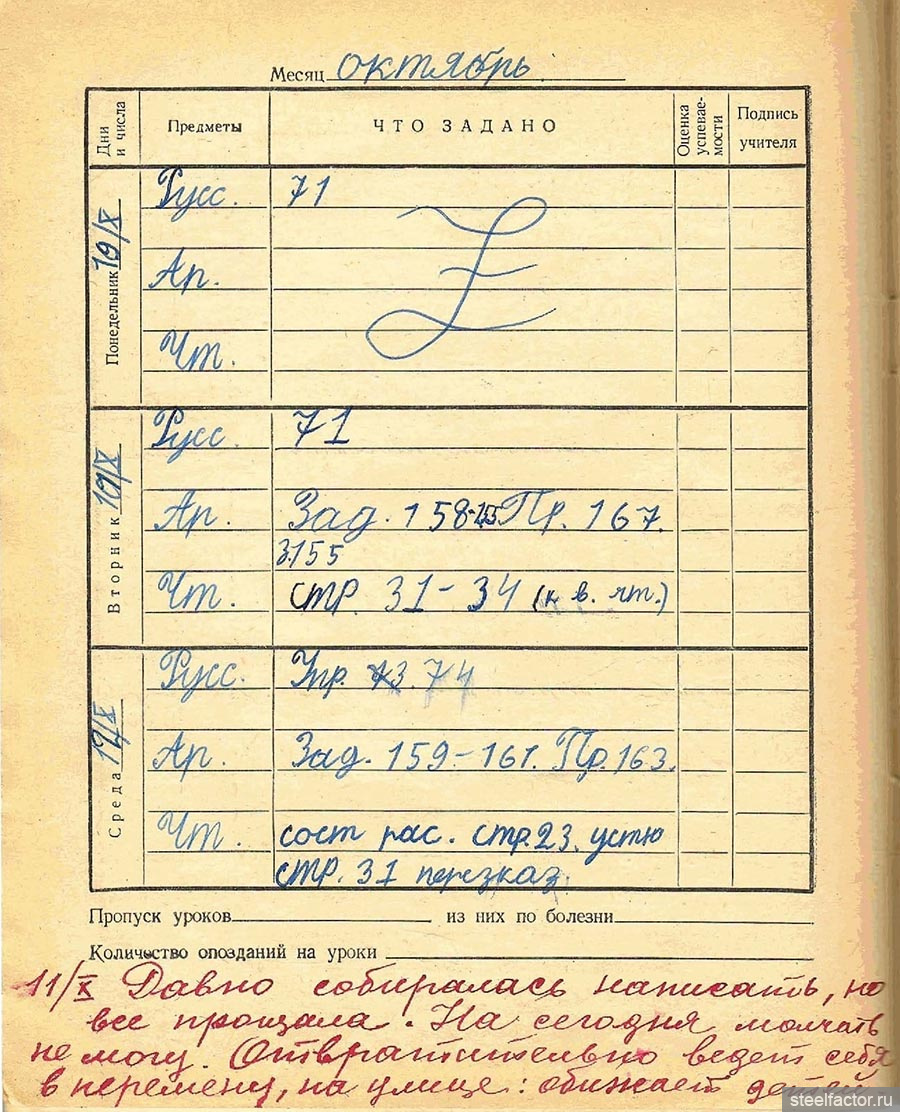 Месяц октябрь
Дни и числа
Предметы
ЧТО ЗАДАНО
Оценка успевае-мости
Подпись учителя
Понедельник
Русс. 71
Ар.
Чт.
Вторник
Русс. 71
Ар. Зад. 158 Пр. 167.
З.155
Чт. стр. 31-34 (к в. чт.)
Среда 12/X
Русс. Упр. 73. 74
Ар. Зад. 159-161. Пр. 163.
Чт. сост рас. стр. 23. устю
стр. 31 перезказ.
Пропуск уроков из них по болезни
Количество опозданий на уроки
11/X Давно собиралась написать, но
все прощала. На сегодня молчать
не могу. Отвратительно ведет себя
в перемену, на улице: обижает детей
steelfactor.ru